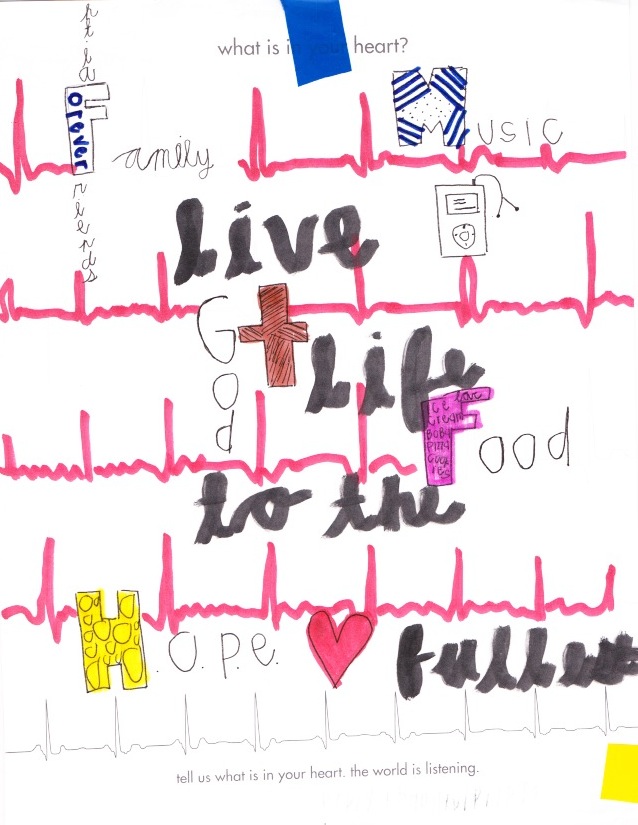 what is in your heart?
Forever
Family
Friends
Music
Live
God
Life
Ice
Cream
Pizza
Food
to the
H.O.P.E.
fullest
tell us what is in your heart. the world is listening.